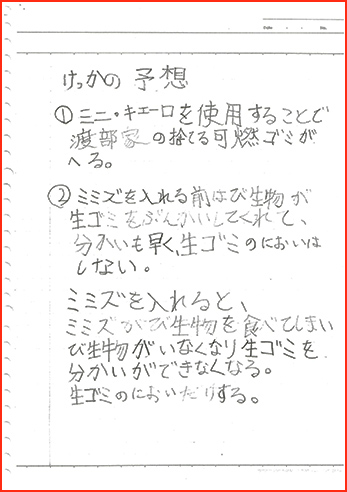 Date ・ ・ No.
けっかの 予想
①ミニ・キエーロを使用することで
渡部家の捨てる可燃ゴミが
へる。
②ミミズを入れる前はび生物が
生ゴミをぶんかいしてくれて、
分かいも早く、生ゴミのにおいは
しない。
ミミズを入れると、
ミミズがび生物を食べてしまい
び生物がいなくなり生ゴミを
分かいができなくなる。
生ゴミのにおいだけする。